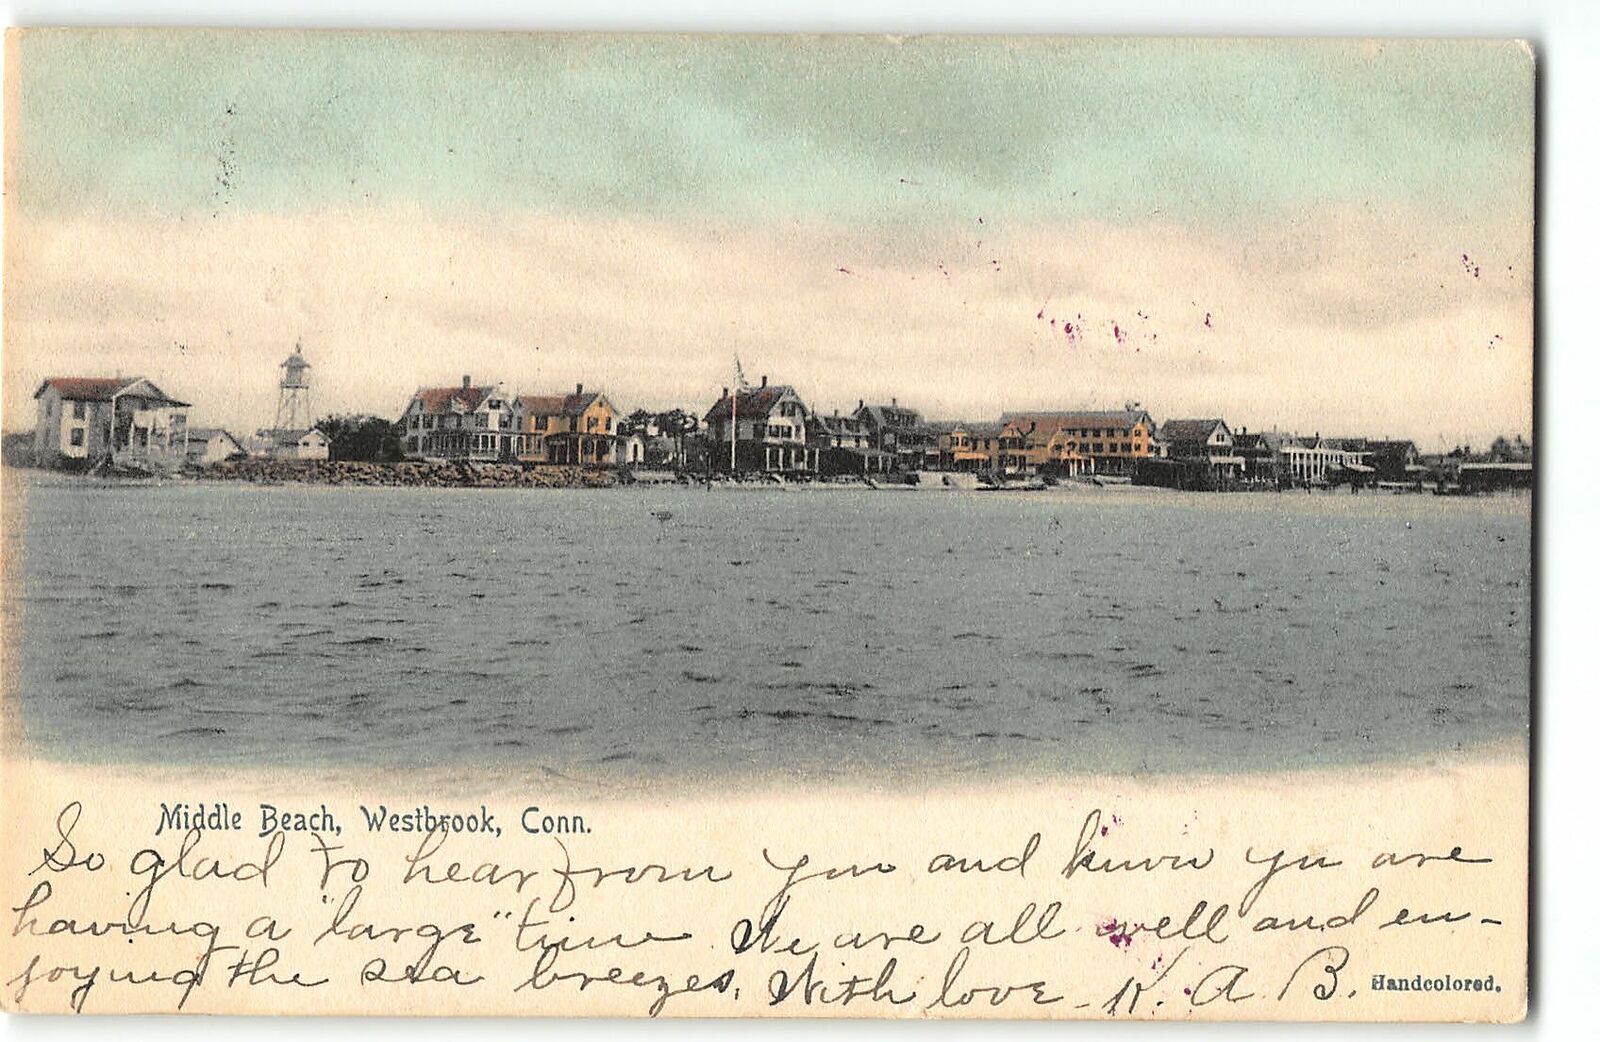 Middle Beach, Westbrook, Conn.
So glad to hear from you and know you are
having a "large" time. We are all well and en-
joying the sea breezes, With love - K. A. B.
Handcolored.